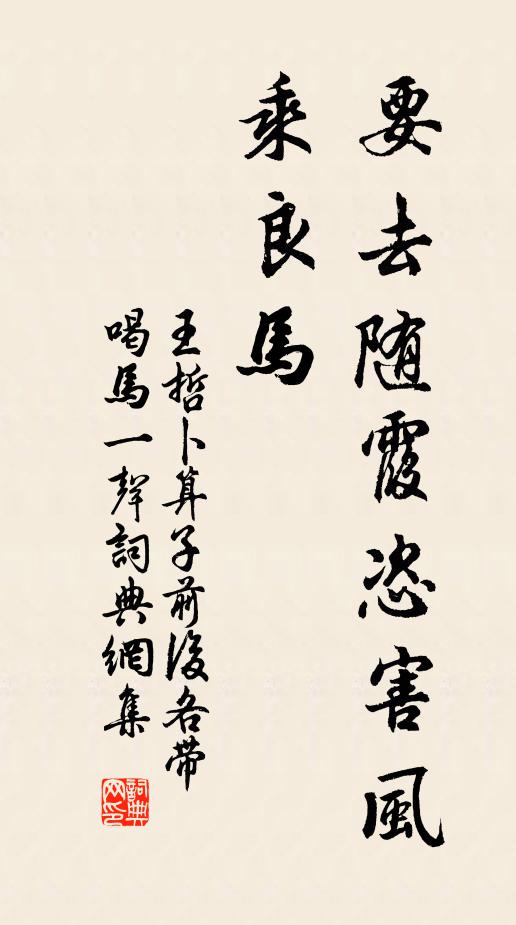 要去随霞恣害風
乘良馬
王哲卜算子前後各帶
喝馬一聲詞典網集
詞典网印